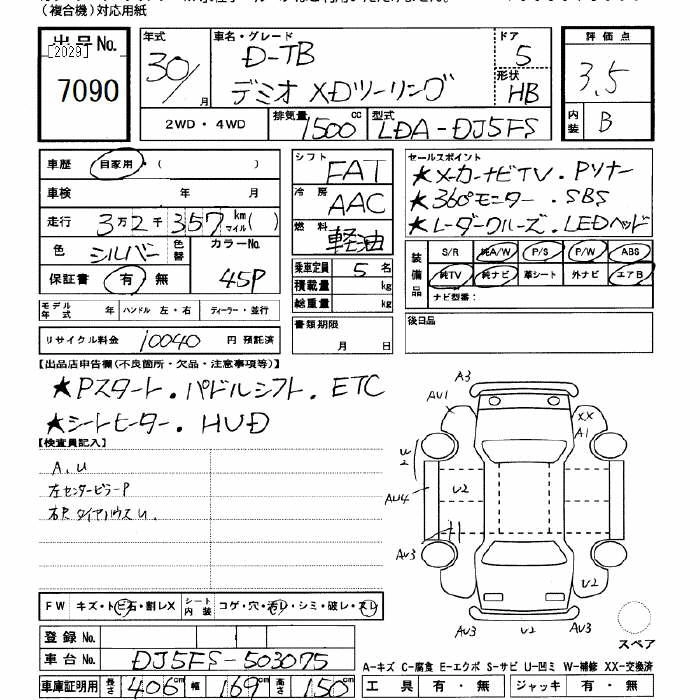 （複合機）対応用紙
出品No. [2029] 7090
年式 30/ 月
車名・グレード D-TB デミオ XDツーリング
ドア 5
形状 HB
2WD・4WD 排気量 1500 cc 型式 LDA-DJ5FS
評価点 3.5
内装 B
車歴 自家用・( )
車検 年 月
走行 3万2千357 km マイル( )
色 シルバー 色替 カラーNo. 45P
保証書 有・無
モデル年式 年 ハンドル 左・右 ディーラー・並行
リサイクル料金 10040 円 預託済
シフト FAT
冷房 AAC
燃料 軽油
乗車定員 5 名
積載量 kg
総重量 kg
書類期限 月 日
セールスポイント
★メーカーナビTV・Pソナー
★360°モニター・SBS
★レーダークルーズ・LEDヘッド
装備品 S/R 純A/W P/S P/W ABS
純TV 純ナビ 革シート 外ナビ エアB
ナビ型番:
後日品
【出品店申告欄(不良箇所・欠品・注意事項等)】
★Pスタート・パドルシフト・ETC
★シートヒーター・HUD
【検査員記入】
A,U
左センターピラーP
右Rタイヤハウスu.
A3
AU1
XX
A1
U2
AU4
U2
AU3
U2
AU3
AU3
スペア
FW キズ・トビ石・割レX シート内装 コゲ・穴・汚レ・シミ・破レ・スレ
登録No.
車台No. DJ5FS-503075
車庫証明用 長さ 406 cm 幅 169 cm 高さ 150 cm
A-キズ C-腐食 E-エクボ S-サビ U-凹ミ W-補修 XX-交換済
工具 有・無 ジャッキ 有・無